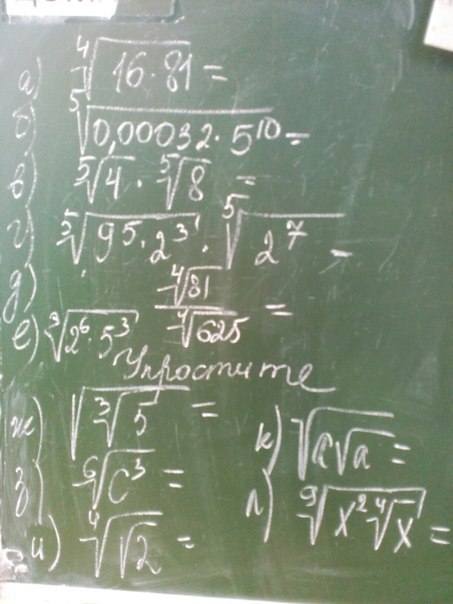 а) ⁴√(16·81) =
б) ⁵√(0,00032·5¹⁰) =
в) ⁵√4 · ⁵√8 =
г) ⁵√(9⁵·2³) · ⁵√(2⁷) =
д) ⁴√81 / ⁴√625 =
е) ³√(2⁶·5³)
Упростите
ж) √(³√5) =
з) ⁶√(c³) =
и) ⁴√(√2) =
к) √(a√a) =
л) ⁹√(x² ⁴√x) =